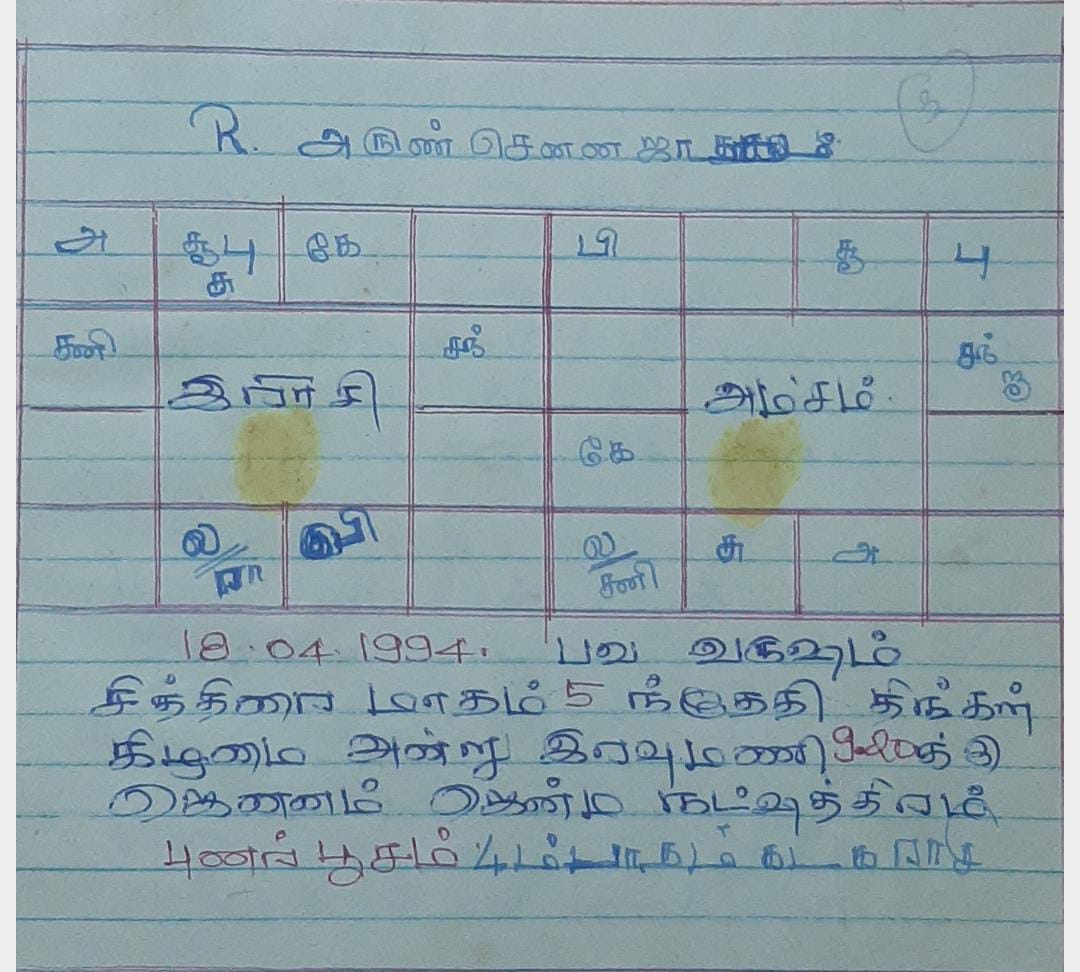 R. அருண் சென்ன ஜா
அ சூ பு கே பி சூ பு
சு
சனி சந் சந்
இராசி அம்சம். ரு
கே
ல/ரா பி ல/சனி சு அ
18.04.1994. பவ வருஷம்
சித்திரை மாதம் 5 ந்தேதி திங்கள்
கிழமை அன்று இரவு மணி 9.20க்கு
ஜெனனம் ஜென்ம நட்ஷத்திரம்
புனர் பூசம் 4ம் பாதம் கடகராசி